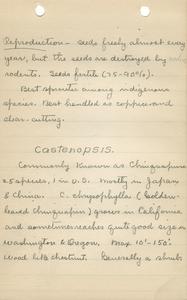 Reproduction - Seeds freely almost every
year, but the seeds are destroyed by
rodents. Seeds fertile (75-90%).
Best sprouter among indigenous
species. Best handled as coppice and
clear-cutting.
Castanopsis.
Commonly known as Chinquapins
25 species, 1 in U.S. mostly in Japan
& China. C. chrysophylla (Golden-
leaved Chinquapin) grows in California
and sometimes reaches quite good size in
Washington & Oregon. Max 10'-150'.
Wood like chestnut. Generally a shrub